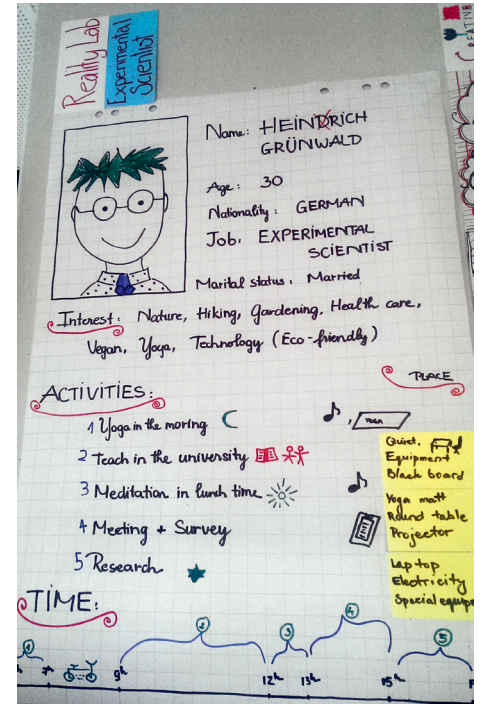 Reality Lab
Experimental
Scientist
Name: HEINDRICH
GRÜNWALD
Age: 30
Nationality: GERMAN
Job: EXPERIMENTAL
SCIENTIST
Marital status: Married
Interest: Nature, Hiking, Gardening, Health care,
Vegan, Yoga, Technology (Eco-friendly)
PLACE
ACTIVITIES:
1 Yoga in the moring
YOGA
2 Teach in the university
3 Meditation in lunch time
4 Meeting + Survey
5 Research
Quiet,
Equipment
Black board
Yoga matt
Round table
Projector
Laptop
Electricity
Special equip
TIME:
1
2
3
4
5
7h
9h
12h
13h
15h